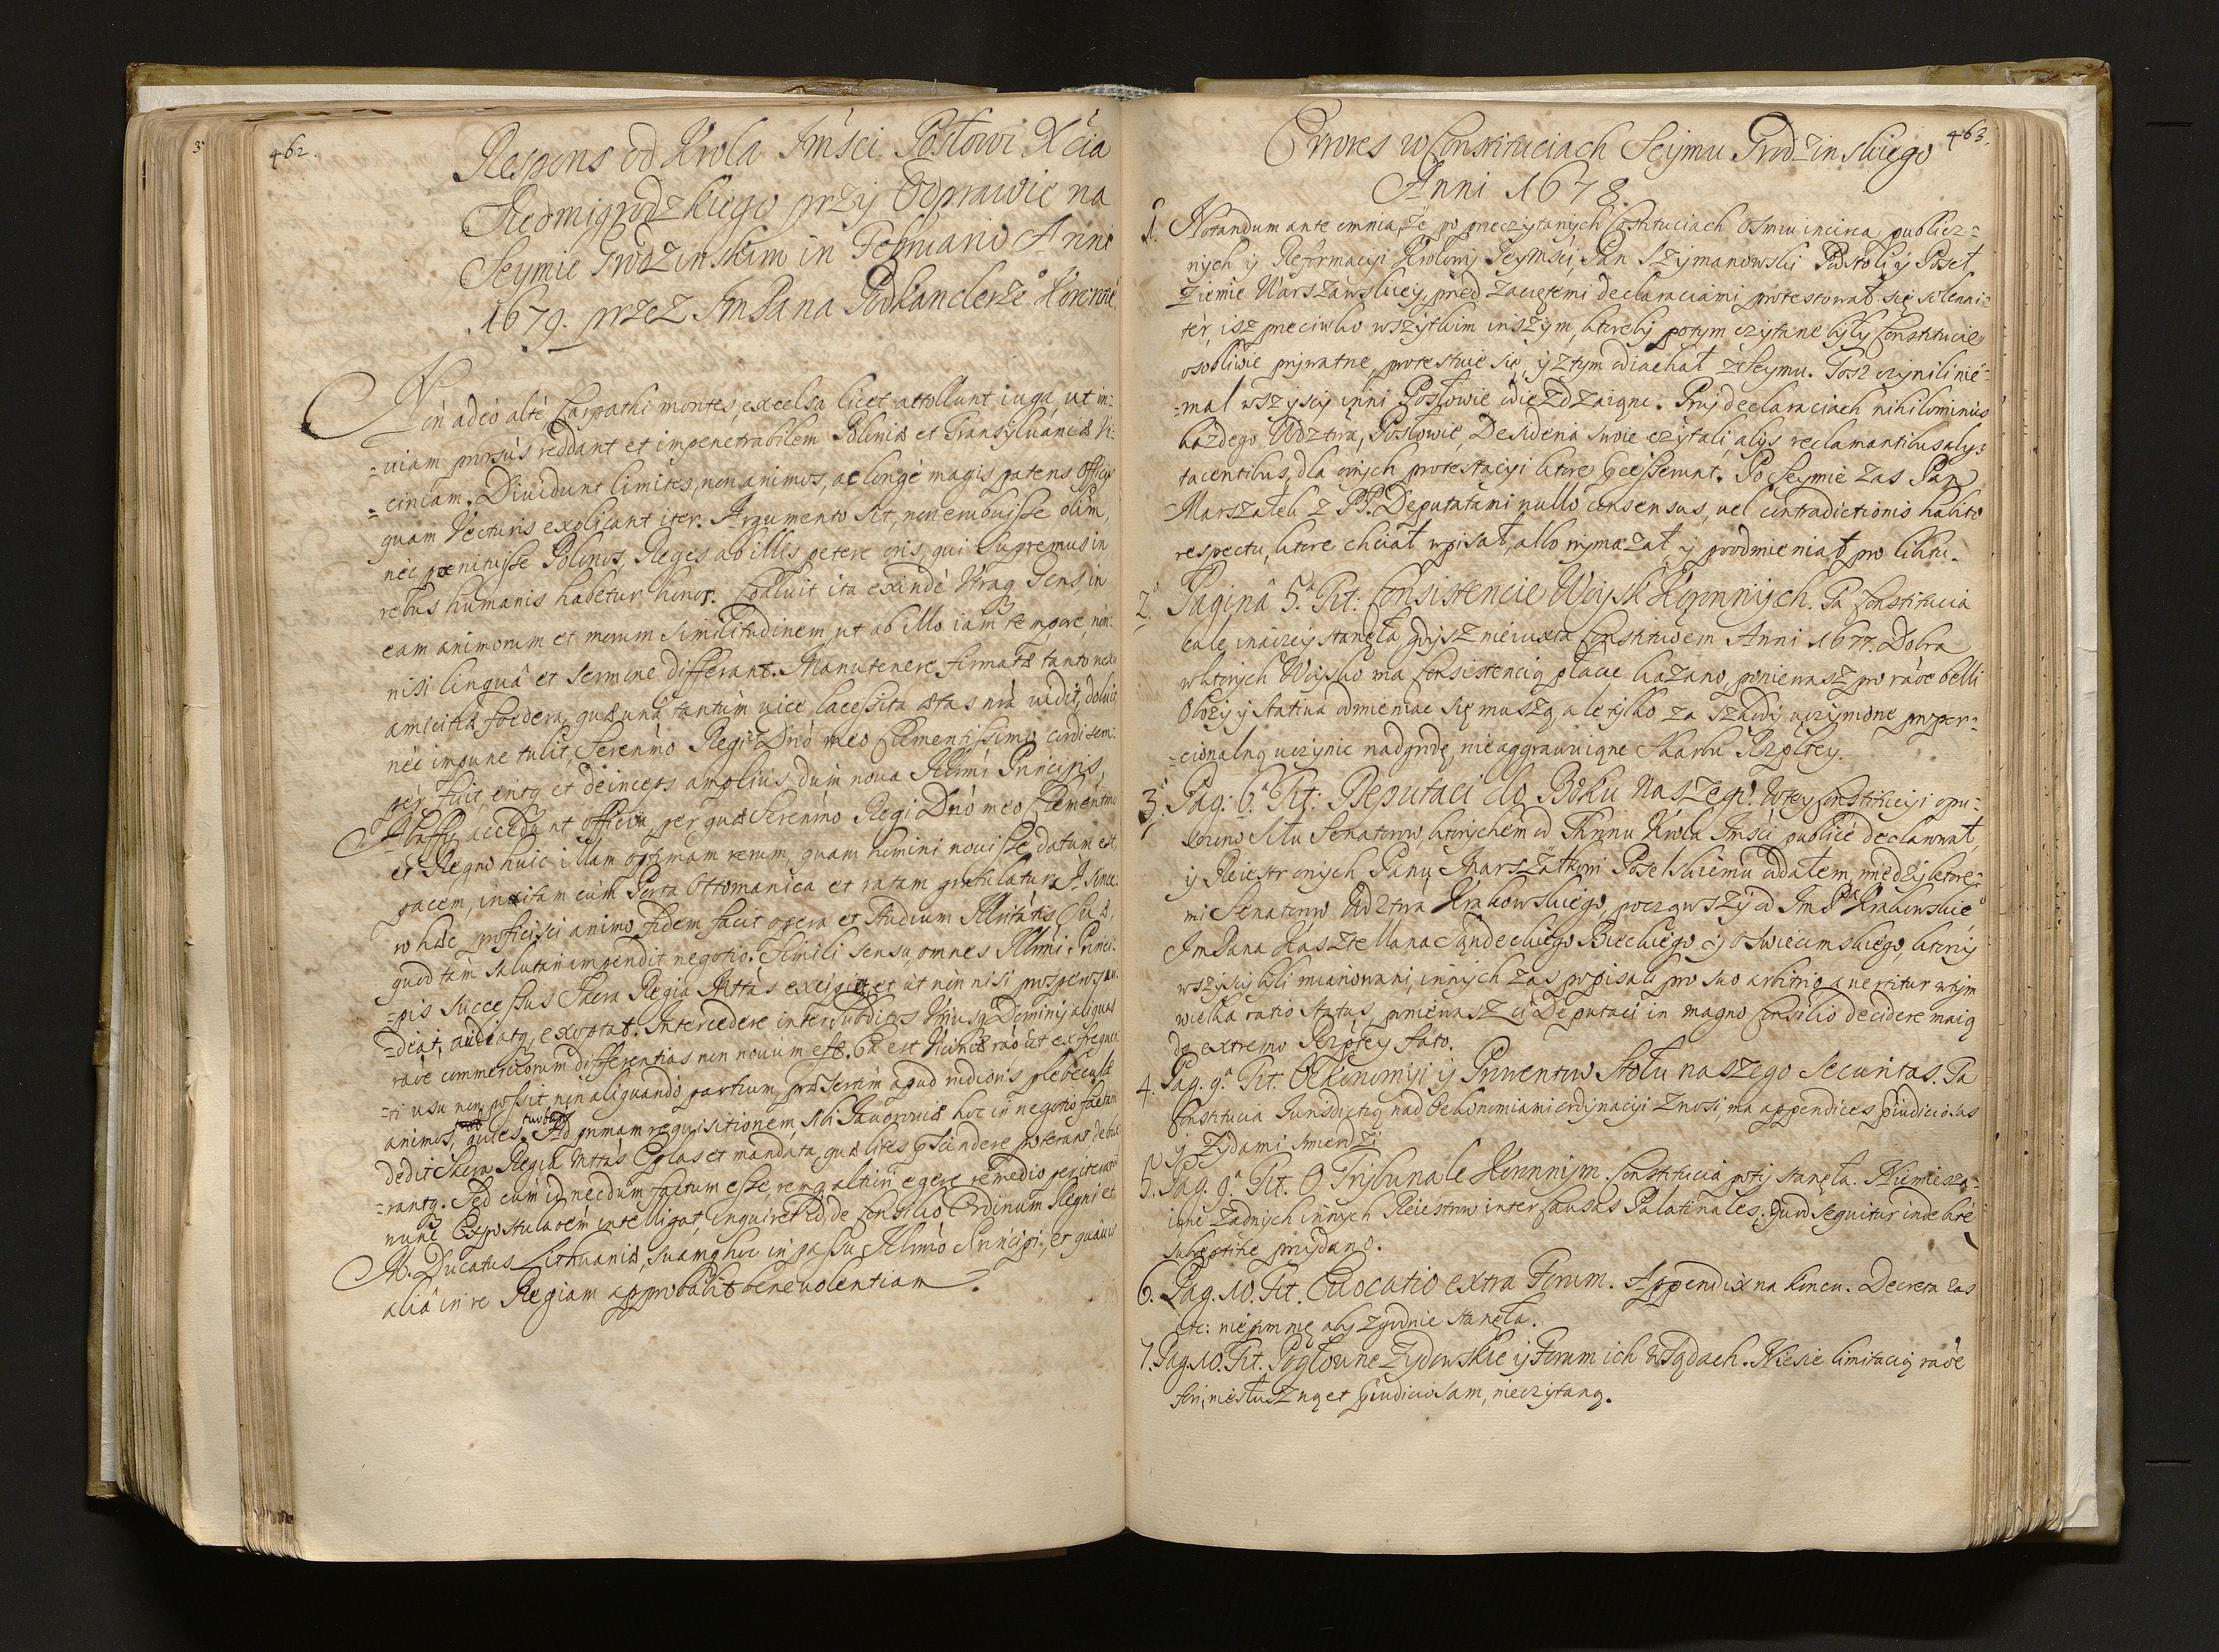 462.
Respons od Krola Jmsci Posłowi Xcia
Siedmigrodzkiego przy Odprawie na
Seymie Grodzinskim in Februario Anni
1679. przez JmPana Podkanclerze° Koronne°
Non adeo alte, Carpathi montes, excelsa licet attollunt iuga, ut in-
-uiam prorsus reddant et impenetrabilem Poloniæ et Transyluaniæ Vi-
-ciniam. Diuidunt limites, non animos, ac longe magis patens officijs
quam Vecturis explicant iter. Argumento sit, non erubuisse olim,
nec pænituisse Polonos, Reges ab illis petere oris, qui supremus in
rebus humanis habetur honor. Coaluit ita exinde Vtraq Gens, in
eam animorum et morum similitudinem, ut ab illo iam tempore, non
nisi lingua et sermone differant. Manutenere firmatæ tanto nexu
amicitiæ foedera, quæ una tantum uice lacessita ætas nra uidit, doluit,
nec impune tulit, Serenmo Regi Dno meo Clementissimo cordi sem-
per fuit, eritq et deinceps amplius, dum noua Illmi Principis,
Abaffy accedunt officia, per quæ Serenmo Regi Dno meo Clementmo
et Regno huic illam optimam rerum, quam homini nouisse datum est,
pacem, initam cum Porta Ottomanica et ratam gratulatur. A since-
ro hæc proficisci animo fidem facit opera et studium Illritatis Suæ,
quod tam salutari impendit negotio. Simili sensu, omnes Illmi Princi-
-pis successus Sacra Regia Mttas excipit et ut non nisi prosperos au-
-diat, auide exoptat. Intercedere inter subditos Vtriusq Dominij aliquas
raõe commerciorum differentias non nouum est. Ea est Viciniæ raõ ut ex frequen-
-ti usu non possit non aliquando partium, præsertim apud rudioris plebeculæ
animos, quies turbari. Ad primam requisitionem, sibi Jauoroviæ hoc in negotio factam
dedit Sacra Regia Mttas Eplas et mandata, quæ lites præscindere poterant debue-
-rantq. Sed cum id necdum factum esse, remq altiori egere remedio per iteratam
nunc Expostulaõem intelligat, inquiret id, de Consilio Ordinum Regni et
M. Ducatus Lithuaniæ, suamq hoc in passu Illmo Principi, et quauis
alia in re Regiam approbabit beneuolentiam.
463.
Errores w Constituciach Seymu Grodzinskiego
Anni 1678.
1. Notandum ante omnia, że po przeczytanych Constituciach osmu incirca publicz-
nych y Reformacyi Krolowy Jeymsci, Pan Szymanowski Podstoli y Poseł
Ziemie Warszawskiey, przed zaczętemi declaraciami protestował się solenni-
ter, isz przeciwko wszytkim inszym, ktoreby potym czytane były Constitucie
osobliwie prywatne, protestuie się, y z tym odiachał z Seymu. Tosz czynili nie-
-mal wszyscy inni Posłowie odieżdzaiąc. Przy declaraciach nihilominus
każdego Wdztwa, Posłowie, Desideria swoie czytali, alijs reclamantibus alijs
tacentibus, dla onych protestacyi ktore præcesserunt. Po Seymie zas Pan
Marszałek z PP. Deputatami nullo consensus, uel contradictionis habito
respectu, ktore chciał wpisał, albo wymazał y poodmieniał pro libitu.
2. Pagina 5.ª Tit: Consistencie Woysk Koronnych. Ta Constitucia
cale inaczey stanęła, gdysz nie iuxta Constituõem Anni 1677. Dobra
w ktorych Woysko ma Consistencią płacic kazano, poniewasz pro raõe belli
Obozy y stativa odmieniac się muszą, ale tylko za szkody uczynione propor-
-cionalną uczynic nadgrodę, nie aggrauuiąc Skarbu Rzpltey.
3. Pag: 6.ª Tit: Deputaci do Boku Naszego. W tey Constitucyi opu-
szczono siłu Senatorow, ktorychem od Thronu Krola Jmsci publice declarował,
y Reiestr onych Panu Marszałkowi Poselskiemu oddałem, miedzy ktore-
mi Senatorow Wdztwa Krakowskiego, począwszy od JmPa Krakowskie°
JmPana Kasztellana Sądeckiego Bieckiego y Oswiecimskiego, ktorzy
wszyscy byli mianowani, innych zas popisali pro suo arbitrio, auertitur w tym
wielka ratio Status, poniewasz ci Deputaci in magno Consilio decidere maią
de extremo Rzpltey fato.
4. Pag. 9.ª Tit. Oekonomiji y Prowentow Stołu naszego Securitas. Ta
Constitucia Jurisdictią nad Oekonomiami ordynacyi znosi, ma appendices præiudiciosas
y Zydami smierdzi.
5. Pag. 9.ª Tit. O Trybunale Koronnym. Constitucia poty stanęła. Niemiesza-
iąc żadnych innych Reiestrow inter Causas Palatinales. Quod sequitur indebite
subreptitie przydano.
6. Pag. 10. Tit. Euocatio extra Forum. Appendix na koncu. Decreta zas
etc: nie pomnię aby zgodnie stanęła.
7. Pag. 10. Tit. Pogłowne Zydowskie y Forum ich w Sądach. Niesie limitacią raõe
fori, niesłuszną et præiudiciosam, nieczytaną.